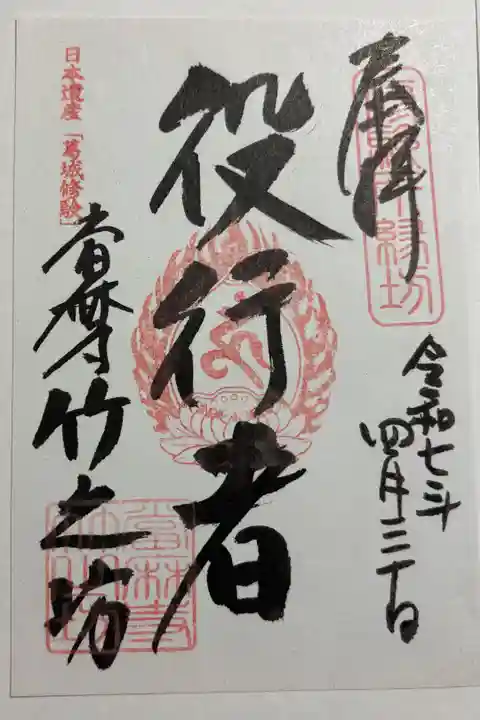 奉拝
令和七年
四月三十日
役行者
日本遺産「葛城修験」
當麻寺竹之坊